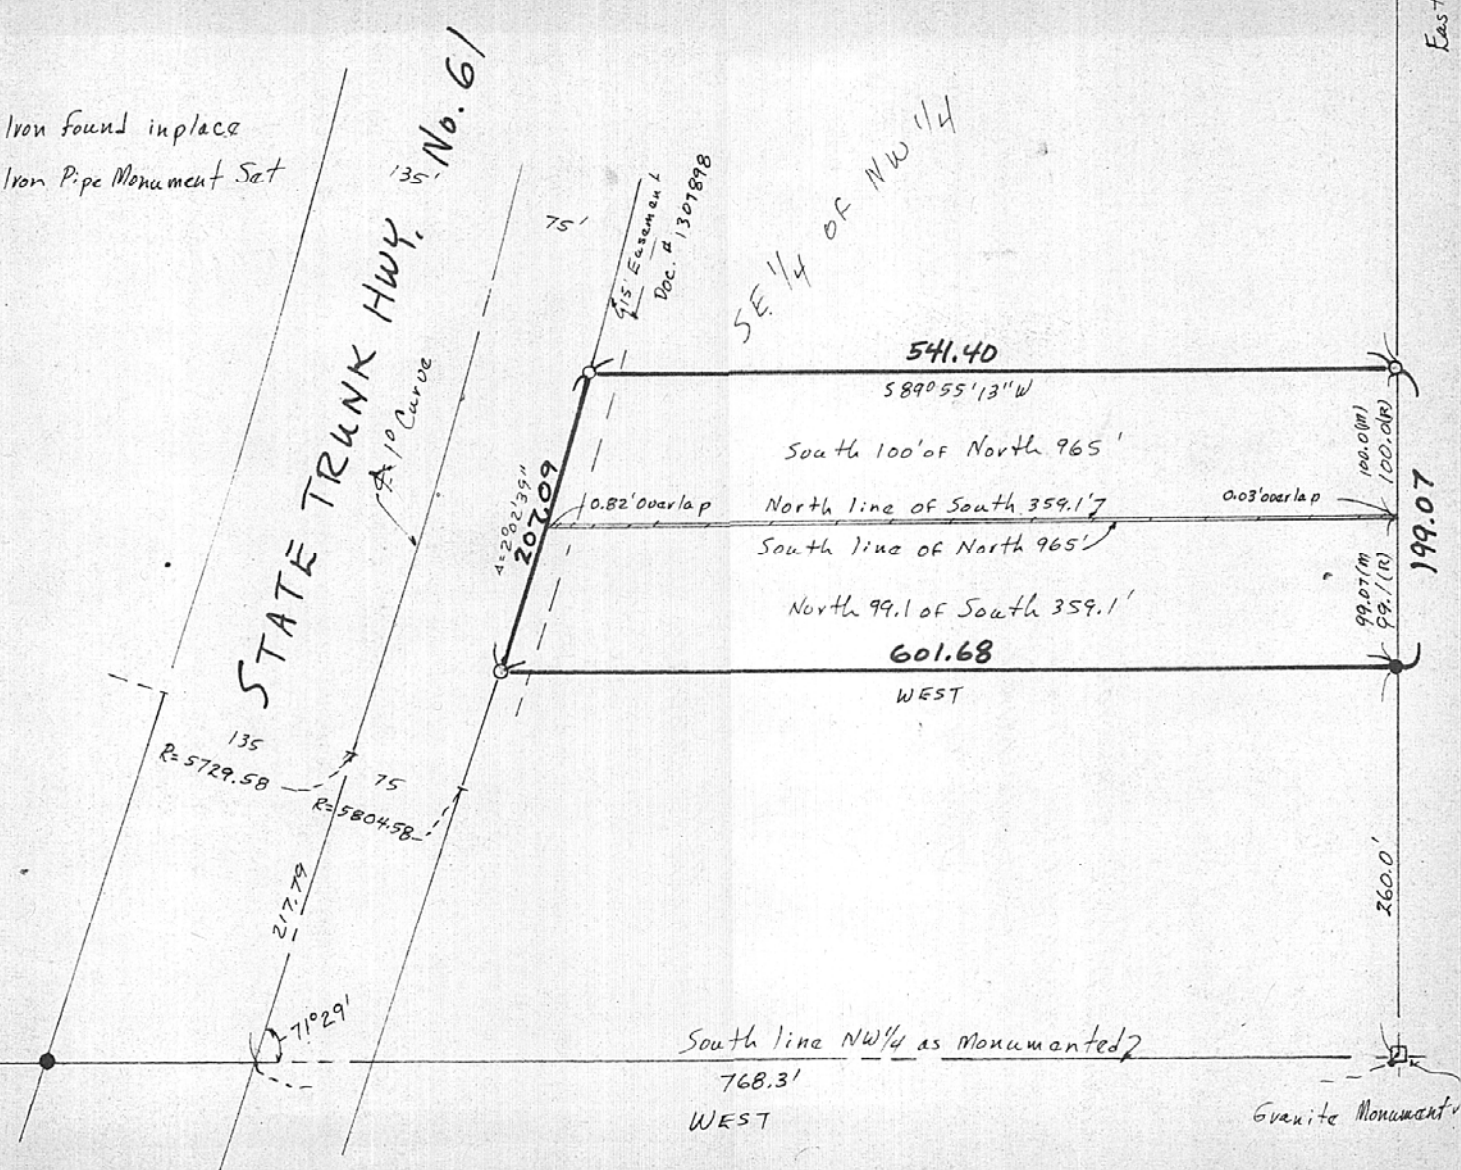 East
Iron found inplace
Iron Pipe Monument Set
STATE TRUNK HWY. No. 61
135'
75'
15' Easement
Doc. # 1307898
SE 1/4 OF NW 1/4
1° Curve
541.40
S 89° 55' 13" W
South 100' of North 965'
100.0(M)
100.0(R)
0.82' overlap
North line of South 359.1'
0.03' overlap
South line of North 965'
Δ=2°02'39"
207.09
199.07
North 99.1 of South 359.1'
99.07(M
99.1(R)
601.68
WEST
135
R=5729.58
75
R=5804.58
217.79
260.0'
71°29'
South line NW 1/4 as Monumented
768.3'
WEST
Granite Monument